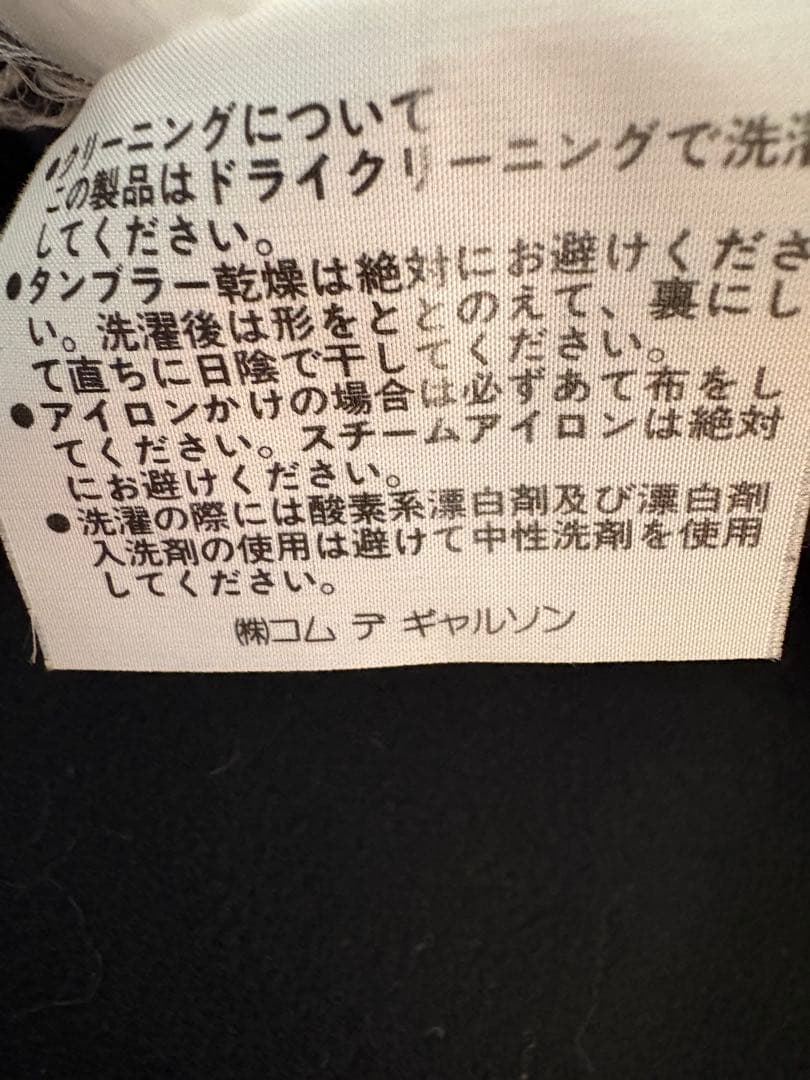 ●クリーニングについて
この製品はドライクリーニングで洗濯
してください。
●タンブラー乾燥は絶対にお避けくださ
い。洗濯後は形をととのえて、裏にし
て直ちに日陰で干してください。
●アイロンかけの場合は必ずあて布をし
てください。スチームアイロンは絶対
にお避けください。
●洗濯の際には酸素系漂白剤及び漂白剤
入洗剤の使用は避けて中性洗剤を使用
してください。
㈱コム デ ギャルソン